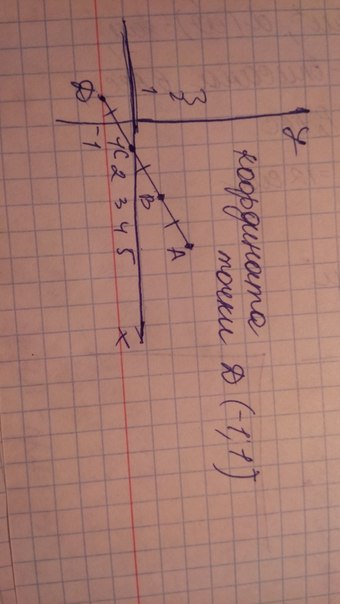 y
координата
точки D (-1; 1)
3
2
A
1
B
x
-1 1 C 2 3 4 5
D